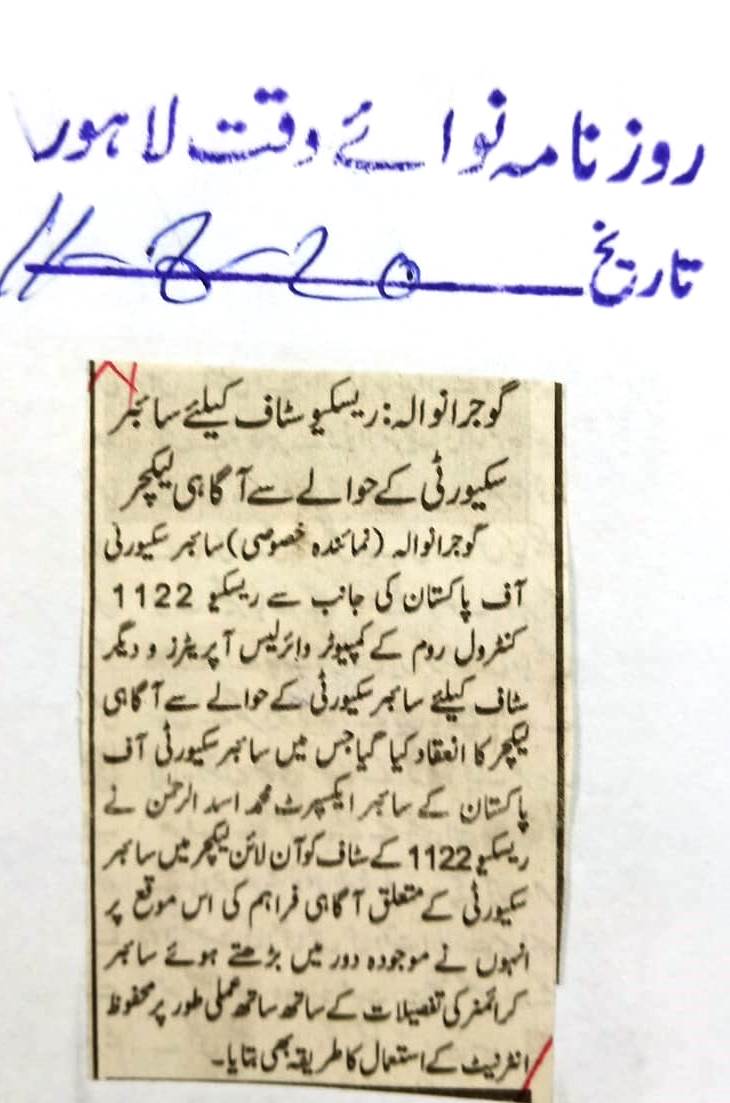 روزنامہ نوائے وقت لاہور
تاریخ 11-8-20
گوجرانوالہ: ریسکیو سٹاف کیلئے سائبر
سکیورٹی کے حوالے سے آگاہی لیکچر
گوجرانوالہ (نمائندہ خصوصی) سائبر سکیورٹی
آف پاکستان کی جانب سے ریسکیو 1122
کنٹرول روم کے کمپیوٹر وائرلیس آپریٹرز و دیگر
سٹاف کیلئے سائبر سکیورٹی کے حوالے سے آگاہی
لیکچر کا انعقاد کیا گیا جس میں سائبر سکیورٹی آف
پاکستان کے سائبر ایکسپرٹ محمد اسد الرحمٰن نے
ریسکیو 1122 کے سٹاف کو آن لائن لیکچر میں سائبر
سکیورٹی کے متعلق آگاہی فراہم کی اس موقع پر
انہوں نے موجودہ دور میں بڑھتے ہوئے سائبر
کرائمز کی تفصیلات کے ساتھ ساتھ عملی طور پر محفوظ
انٹرنیٹ کے استعمال کا طریقہ بھی بتایا۔